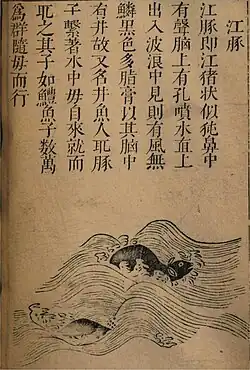 江豚
江豚即江猪狀似㹠鼻中
有聲腦上有孔噴水直上
出入波浪中見則有風無
鱗黑色多脂膏以其腦中
有井故又名井魚人耴豚
子繫著水中母自來就而
耴之其子如鱧魚子數萬
為群隨母而行